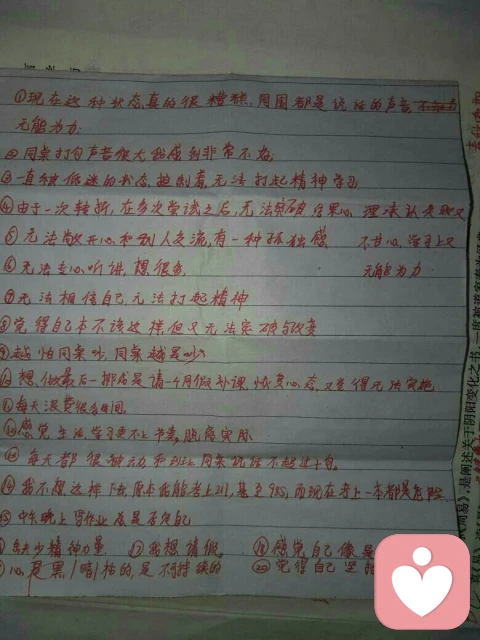 ①现在这种状态真的很糟糕,周围都是说话的声音
无能为力;
②同桌打勾声音很大我感到非常不安;
③一直被低迷的状态控制着,无法打起精神学习
④由于一次转折,在多次尝试之后,无法突破
⑤无法敞开心和别人交流,有一种孤独感
不甘心,学习上又
⑥无法专心听讲,想很多
无能为力
⑦无法相信自己,无法打起精神
⑧觉得自己本不该这样但又无法突破与改变
⑨越怕同桌吵,同桌越是吵
⑩想做最后一挪就是请一个月假补课,恢复心态,又觉得无法实施
⑪每天浪费很多时间
⑫感觉生活,学习跟不上节奏,脱离实际
⑬每天都很被动和班上同来说话不超过十句。
⑭我不想这样下去,原本我能考上211,甚至985,而现在考上一本都是危险
⑮中午晚上写作业总是否定自己
缺少精神力量
⑰我想请假。
⑱感觉自己像是
心是黑暗的,是不持续的
⑳觉得自己
是阐述关于阴阳变化之书